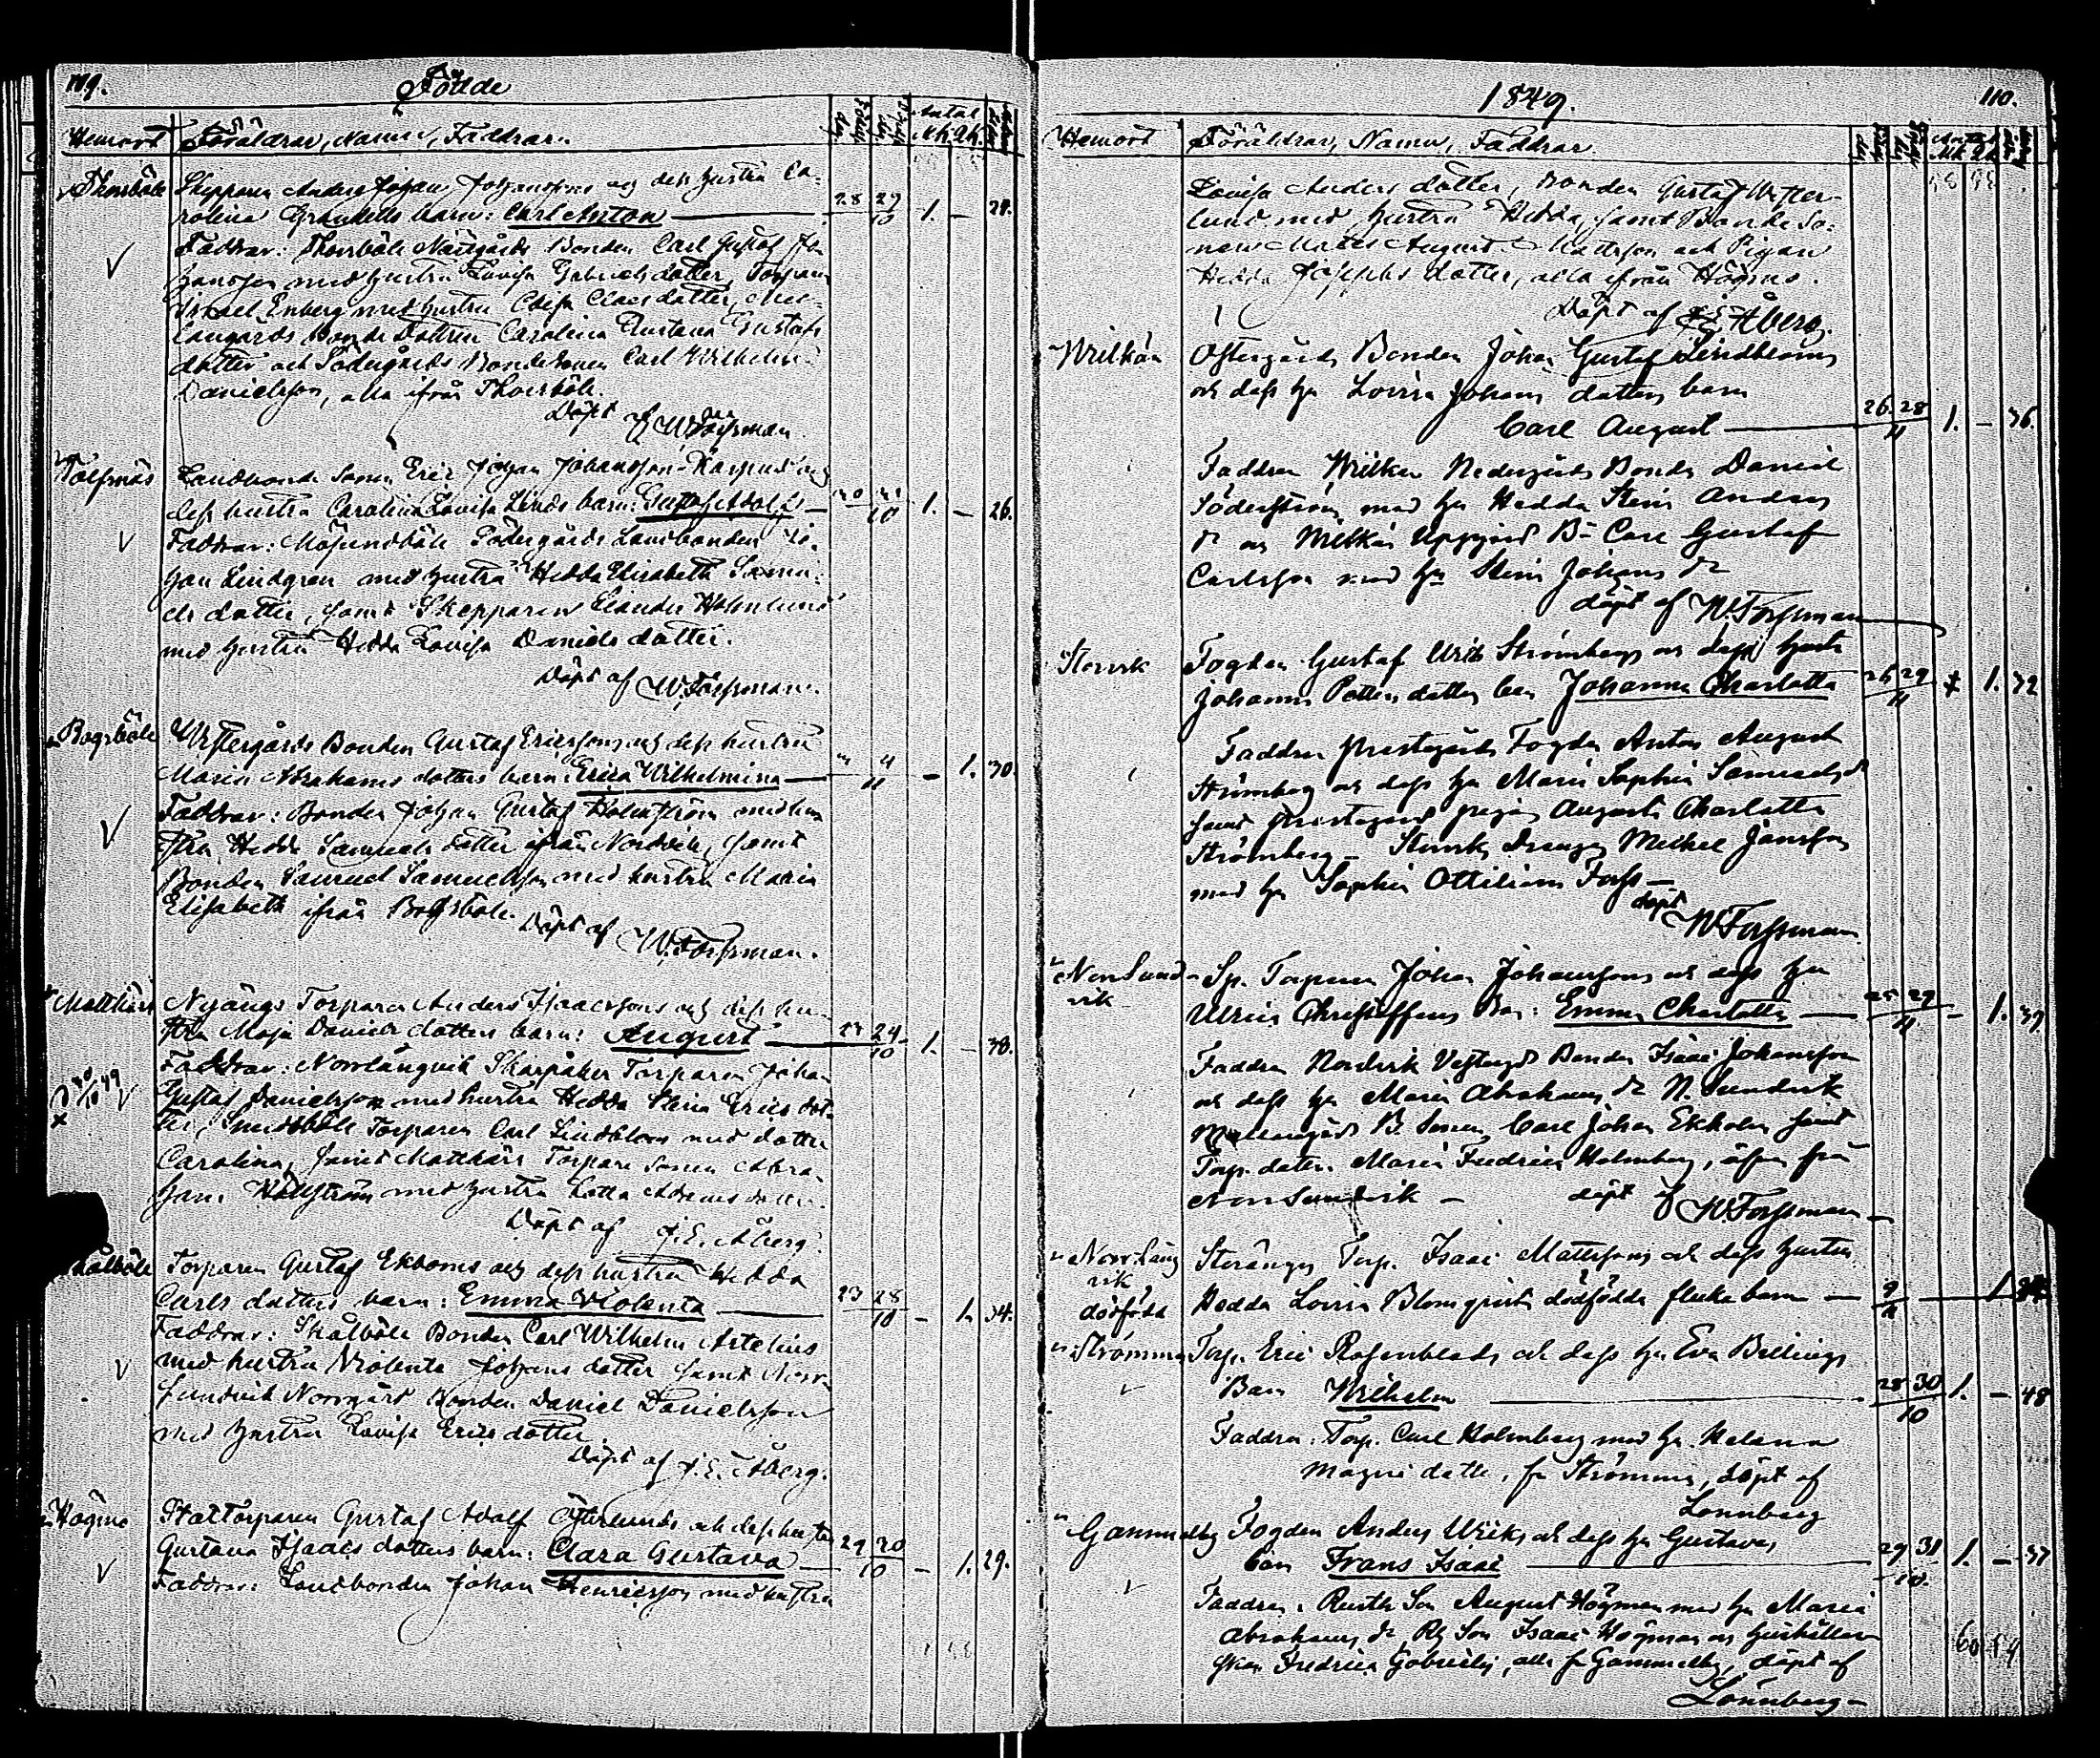 109.
Födde
Hemort Föräldrar, Namn, Faddrar. Födelse dag Döpelse dag Antal Mk. Qk.
Thorsböle Skepparen Anders Johan Johanssons och dess hustru Ca-
rolina Grandells barn: Carl Anton — 28 29/10 1. — 28.
Faddrar: Thorsböle Näsgårds Bonden Carl Gustaf Jo-
hansson med hustru Lovisa Gabriels dotter, Torparen
Israel Enberg med hustru Cajsa Claes dotter, Mel-
langårds Bonde Dottren Carolina Gustava Gustafs
dotter och Södergårds Bondesonen Carl Wilhelm
Danielsson, alla ifrån Thorsböle.
Döpt af W. Forssman.
Landbonde Sonen Eric Johan Johansson Karpus och
dess hustru Carolina Lovisa Linds barn: Gustaf Adolf — 10 1. — 26.
Faddrar: Mösundböle Södergårds Landbonden Jo-
han Lindgren med hustru Hedda Elisabeth Samu-
els dotter, samt Skepparen Leander Holmlund
med hustru Hedda Lovisa Daniels dotter.
Döpt af W. Forssman.
Bogsböle Westergårds Bonden Gustaf Erikssons och dess hustru
Maria Abrahams dotters barn: Erica Wilhelmina — 4/11 — 1. 30.
Faddrar: Bonden Johan Gustaf Holmström med hu-
stru Hedda Samuels dotter ifrån Nordvik, samt
Bonden Samuel Samuelsson med hustru Maria
Elisabeth ifrån Bogsböle.
Döpt af W. Forssman.
Mattkärr Nyängs Torparen Anders Isaacssons och dess hu-
stru Maja Daniels dotters barn: August — 23 24/10 1. — 38.
Faddrar: Norrlångvik Skarpåker Torparen Johan
Gustaf Danielsson med hustru Hedda Stina Erics dot-
ter, Smedsböle Torparen Carl Lindblom med dotter
Carolina, samt Mattkärr Torpare Sonen Abra-
ham Hällström med hustru Lotta Adams dotter.
Döpt af J. E. Åberg.
Skålböle Torparen Gustaf Ekboms och dess hustru Hedda
Carls dotters barn: Emma Violenta — 23 28/10 — 1. 34.
Faddrar: Skålböle Bonden Carl Wilhelm Artelius
med hustru Violenta Johans dotter samt Norr-
sundvik Norrgård Bonden Daniel Danielsson
med hustru Lovisa Erics dotter
Döpt af J. E. Åberg.
Högmo Stattorparen Gustaf Adolf Österlunds och dess hustru
Gustava Isaacs dotters barn: Clara Gustava — 29 30/10 — 1. 29.
Faddrar: Landbonden Johan Henricsson med hustru
1849.
110.
Hemort Föräldrar, Namn, Faddrar.
Lovisa Anders dotter, Bonden Gustaf Wester-
lund med hustru Hedda, samt Bonde So-
nen Matts August Mattsson och Pigan
Hedda Josephs dotter, alla ifrån Högmo.
Döpt af J. E. Åberg.
Wilkän Östergårds Bonden Johan Gustaf Lindbloms
och dess hu Lovisa Johans dotters barn
Carl August — 26. 28/11 1. — 36.
Faddrar Wilkän Nedergårds Bonden Daniel
Söderström med hu Hedda Stina Anders
dr och Wilkän Uppgård Bn Carl Gustaf
Carlsson med hu Stina Johans dr
döpt af W. Forssman
Stensvik Fogden Gustaf Ulrik Strömbergs och dess hustru
Johanna Petters dotters barn Johanna Charlotta 26 29/11 1. 32
Faddrar Prestgårds Fogden Anton August
Strömberg och dess hu Maria Sophia Samuels dr
samt Prestegård pigan Augusta Charlotta
Strömberg — Stensviks Drengen Michel Jansson
med hu Sophia Ottiliana Forss —
döpt
W Forssman
Norr Sund-
vik Sp. Torparen Johan Johanssons och dess hu
Ulrica Christoffers Barn: Emma Charlotta — 25 29/11 — 1. 39
Faddrar Nordvik Vestergd Bonden Isaac Johansson
och dess hu Maria Abrahams dr N. Sundvik
Mellangårds B. Sonen Carl Johan Ekholm samt
Torp. dotter Maria Fredrica Holmberg, äfven från
Norr Sundvik — döpt af W Forssman —
Norr Lång
vik
dödfödd Storängs Torp. Isaac Mattssons och dess hustru
Hedda Lovisa Blomqvists dödfödda flicke barn — 1
Strömma Torp. Eric Rosenblads och dess hu Eva Billings
Barn Wilhelm — 28 30/10 1. — 48
Faddrar: Torp. Carl Holmberg med hu Helena
Magni dotter, fr Strömma, döpt af
Lönnberg
Gammelby Fogden Anders Wiks och dess hu Gustavas
barn Frans Isaac — 29 31/10. 1. — 37
Faddrar: Rusth Son August Högman med hu Maria
Abrahams dr, Rh Son Isaac Högman och Hushåller-
skan Fredrica Gabriels, alla fr Gammelby, döpt af
Lönnberg —
60 59